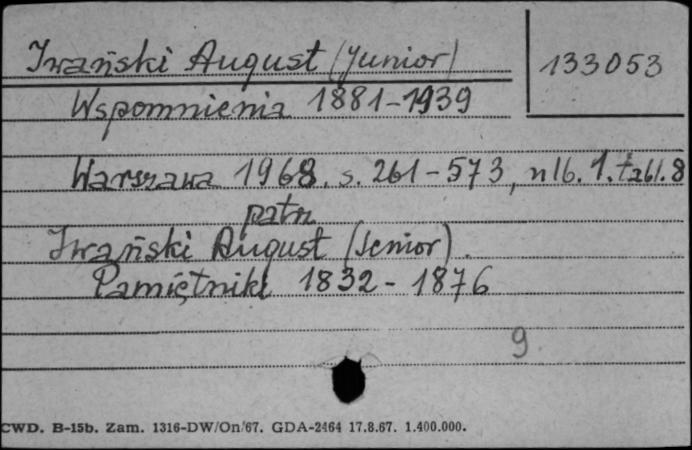 Iwański August (Junior)
133053
Wspomnienia 1881-1939
Warszawa 1968, s. 261-573, nlb. 1. tabl. 8
patrz
Iwański August (Senior).
Pamiętniki 1832-1876
9
CWD. B-15b. Zam. 1316-DW/On/67. GDA-2464 17.8.67. 1.400.000.